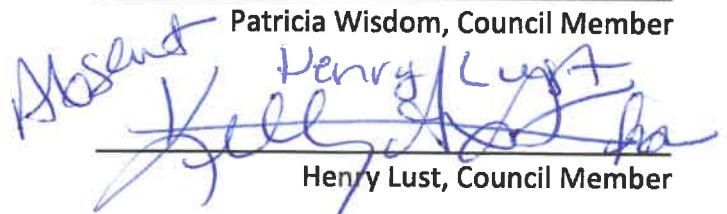 Patricia Wisdom, Council Member
Absent
Henry Lust
Kelly
Henry Lust, Council Member